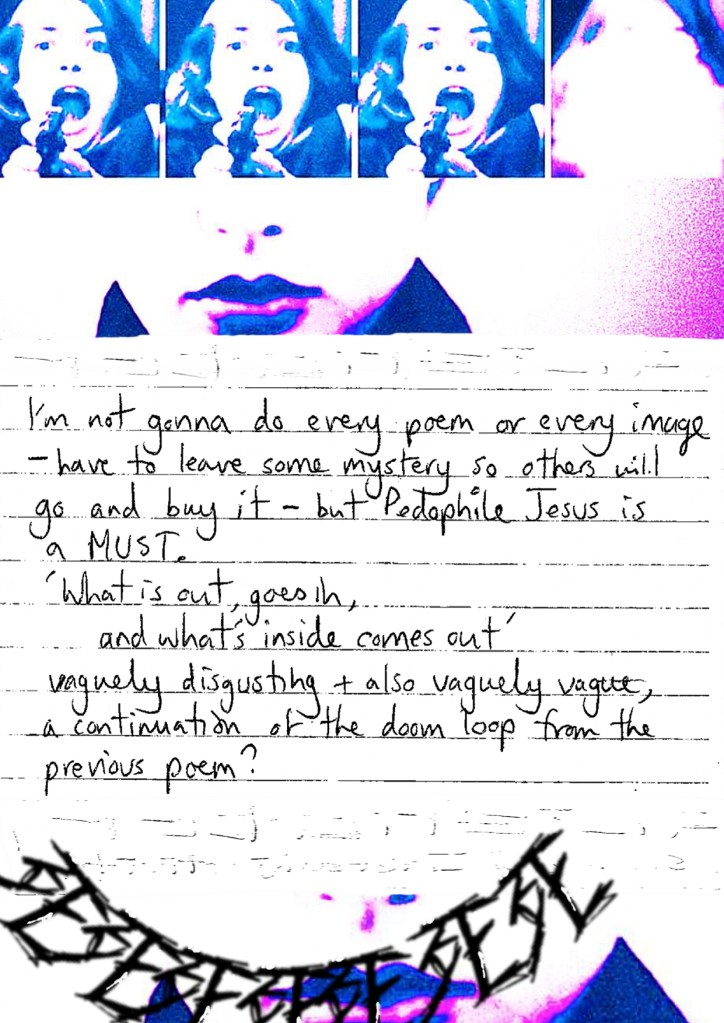 I'm not gonna do every poem or every image
- have to leave some mystery so others will
go and buy it - but Pedophile Jesus is
a MUST.
'What is out, goes in,
and what's inside comes out'
vaguely disgusting + also vaguely vague,
a continuation of the doom loop from the
previous poem?